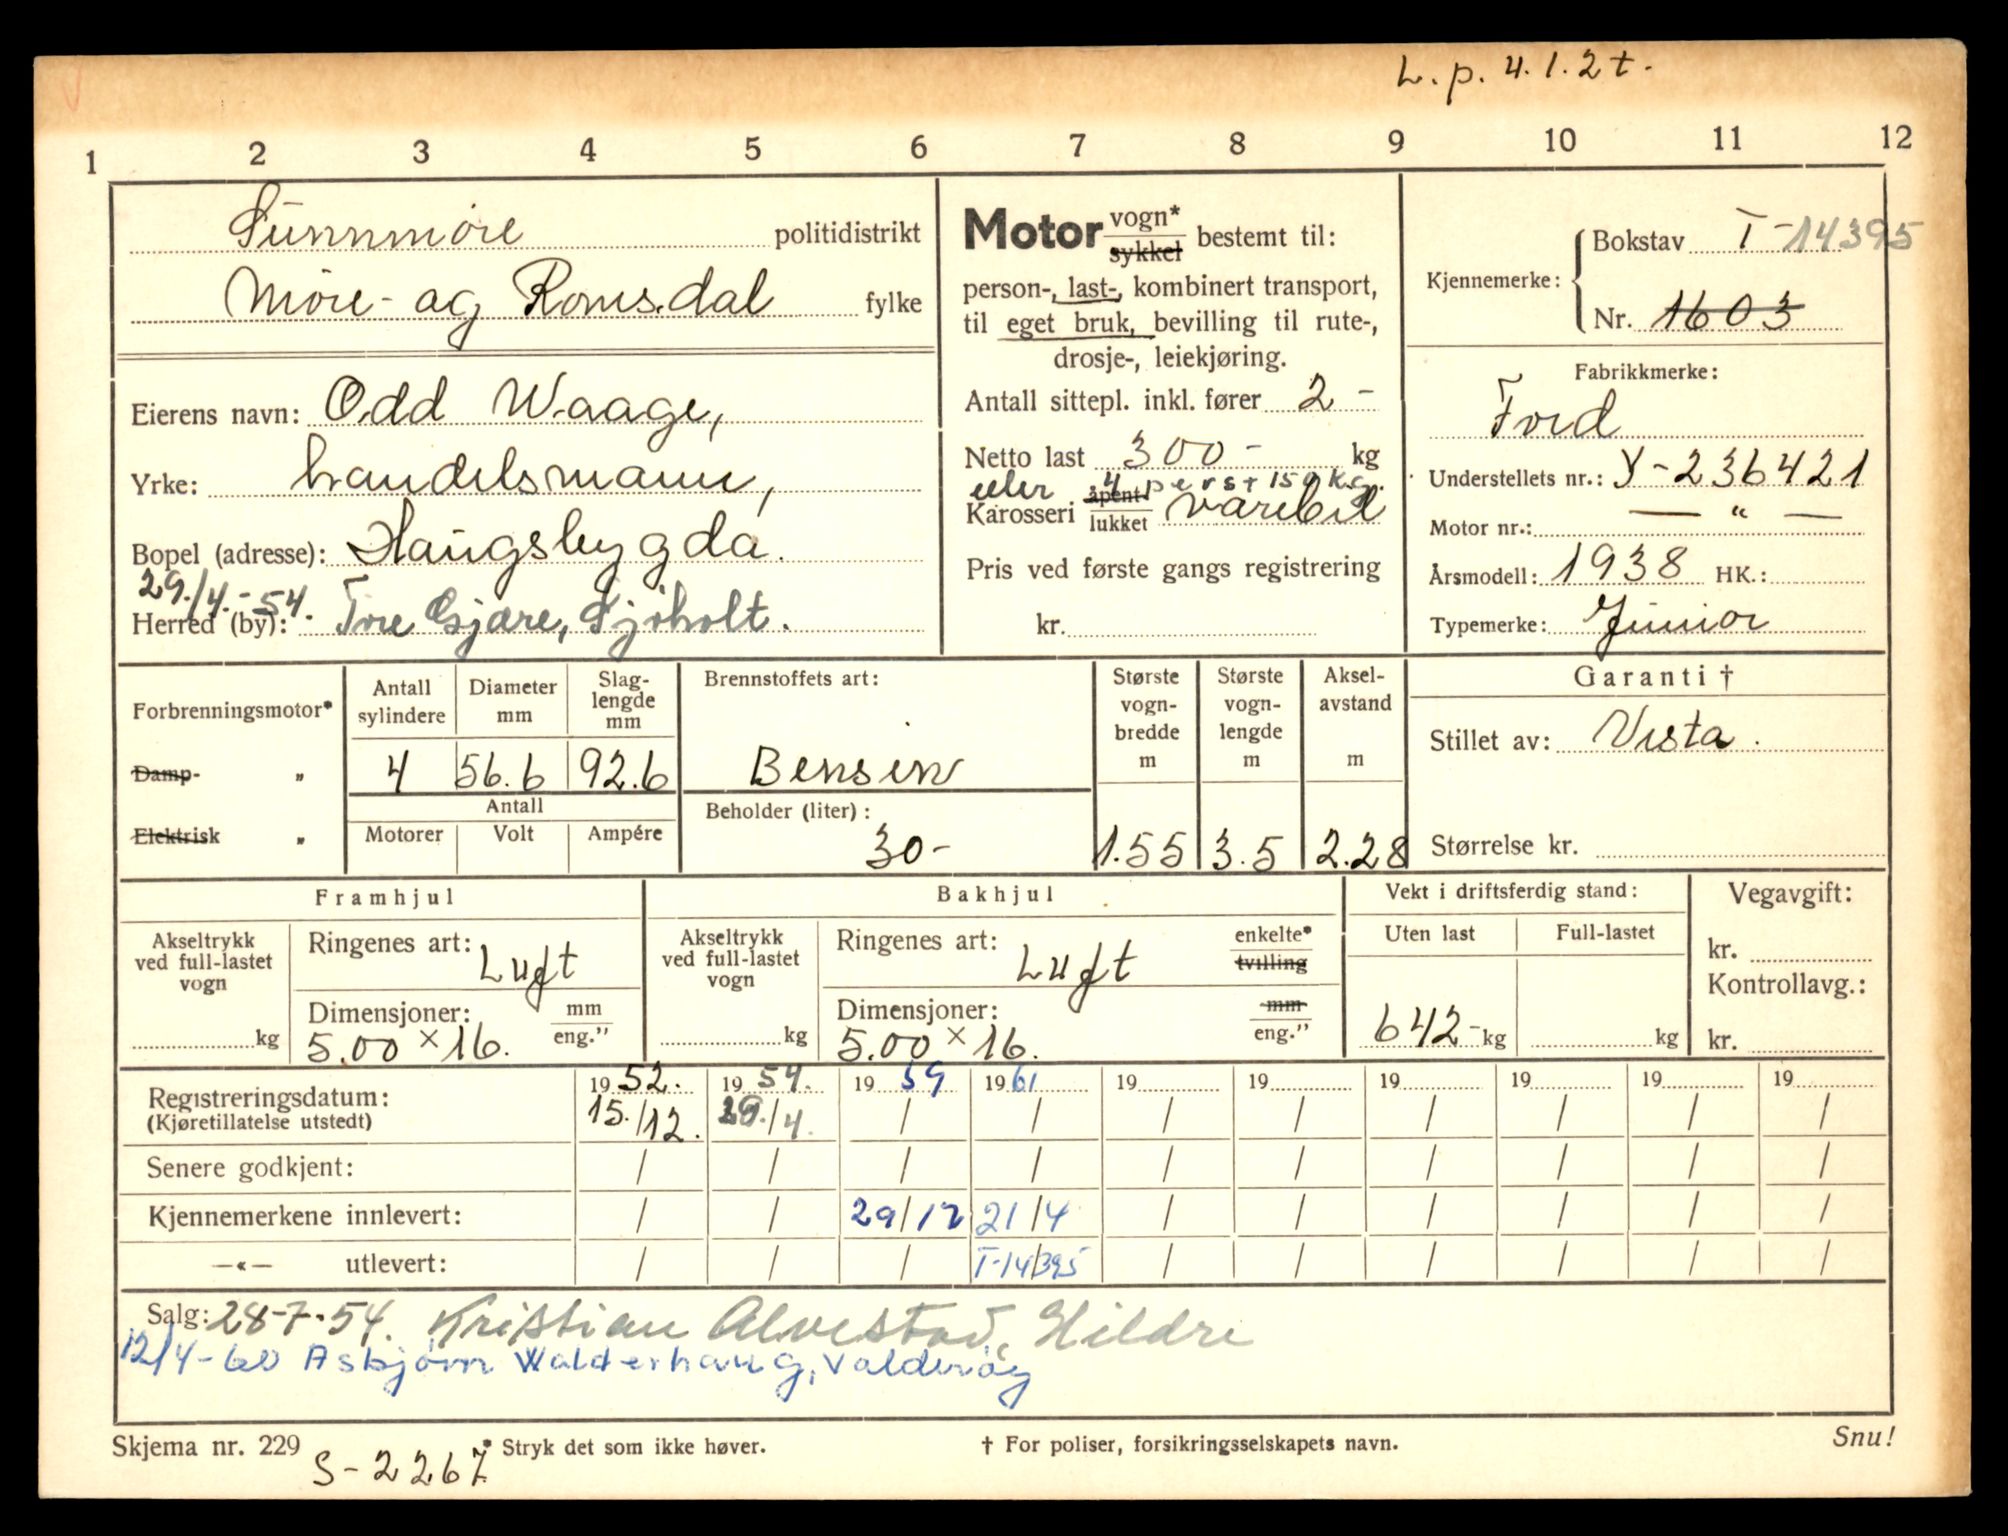 L. p. 4. 1. 2 t.
1 2 3 4 5 6 7 8 9 10 11 12
Sunnmøre politidistrikt
Møre- og Romsdal fylke
Eierens navn: Odd Waage,
Yrke: handelsmann,
Bopel (adresse): Haugsbygda.
29./4.-54.
Herred (by): Tore Gjære, Sjøholt.
Motor vogn* sykkel bestemt til:
person-, last-, kombinert transport,
til eget bruk, bevilling til rute-,
drosje-, leiekjøring.
Antall sittepl. inkl. fører 2 -
Netto last 300 - kg
eller 4 pers + 150 kg.
Karosseri åpent lukket varebil
Pris ved første gangs registrering
kr.
Kjennemerke: Bokstav T-14395
Nr. 1603
Fabrikkmerke:
Ford
Understellets nr.: Y-236421
Motor nr.: — " —
Årsmodell: 1938 HK.:
Typemerke: Junior
Forbrenningsmotor*
Damp- „
Elektrisk „
Antall sylindere Diameter mm Slaglengde mm
4 56.6 92.6
Antall
Motorer Volt Ampére
Brennstoffets art:
Bensin
Beholder (liter):
30-
Største vognbredde m 1.55
Største vognlengde m 3.5
Akselavstand m 2.28
Garanti †
Stillet av: Vesta.
Størrelse kr.
Framhjul
Akseltrykk ved full-lastet vogn
kg
Ringenes art: Luft
Dimensjoner: mm eng.”
5.00 × 16.
Bakhjul
Akseltrykk ved full-lastet vogn
kg
Ringenes art: Luft enkelte* tvilling
Dimensjoner: mm eng.”
5.00 × 16.
Vekt i driftsferdig stand:
Uten last Full-lastet
642- kg kg
Vegavgift:
kr.
Kontrollavg.:
kr.
Registreringsdatum: 1952. 1954. 1959 1961 19 19 19 19 19 19
(Kjøretillatelse utstedt) 15./12. 29./4. / / / / / / / /
Senere godkjent: / / / / / / / / / /
Kjennemerkene innlevert: / / 29/12 21/4 / / / / / /
—«— utlevert: / / / T-14395 / / / / / /
Salg: 28-7-54. Kristian Alvestad, Hildre
12/4-60 Asbjørn Walderhaug, Valderøy
Skjema nr. 229 * Stryk det som ikke høver. † For poliser, forsikringsselskapets navn. Snu!
S-2267